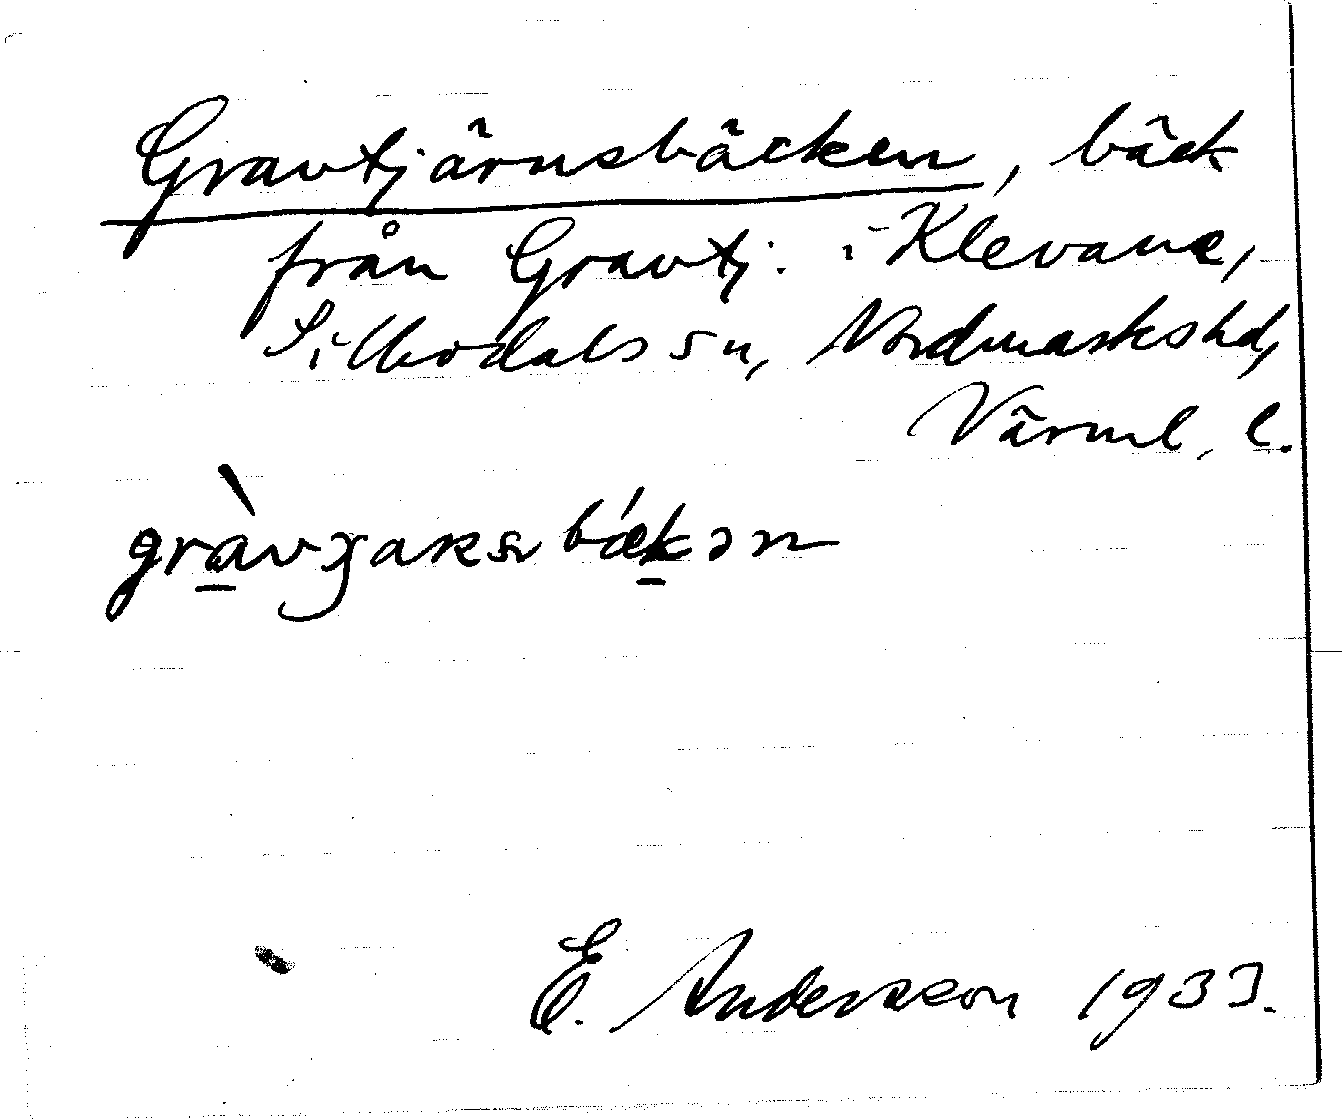 Gravtjärnsbäcken, bäck
från Gravtj. i Klevane,
Silbodals sn, Nordmarkshd,
Värml. l.
E. Andersson 1933.